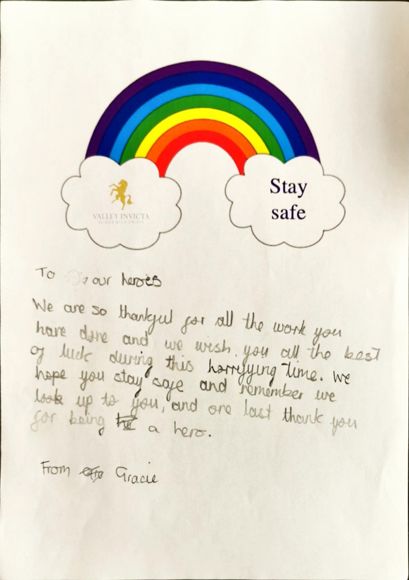 VALLEY INVICTA
Stay
safe
To our heroes
We are so thankful for all the work you
have done and we wish you all the best
of luck during this horryying time. We
hope you stay safe and remember we
look up to you, and one last thank you
for being a hero.
From Gracie